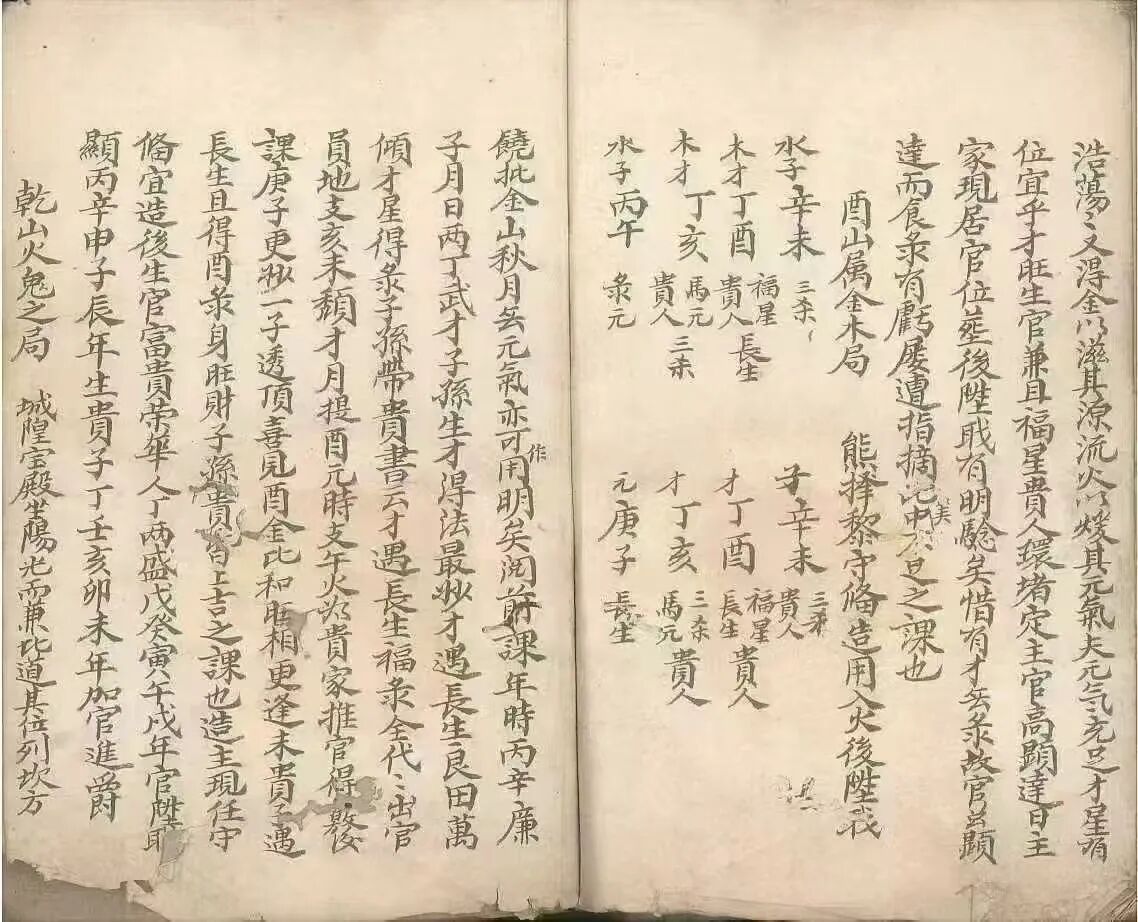 浩蕩〻又得金以滋其源流火以煖其元氣夫元气充足才星有
位宜乎才旺生官兼且福星貴人環堵定主官高顯達日主
家現居官位塟後陞戝有明騐矣惜有才无彔故官虽顯
達而食彔有虧屡遭指摘此中美之課也
酉山属金木局　熊择黎守俻造用入火後陞我
水子辛未　三杀　子辛未　三杀貴人
木才丁酉　福星貴人長生　才丁酉　福星長生貴人
木才丁亥　馬元貴人三杀　才丁亥　三杀馬元貴人
水子丙午　彔元　元庚子　長生
饒批金山秋月无元氣亦可作用明矣閲前課年時丙辛廉
子月日两丁武才子孫生才得法最妙才遇長生良田萬
傾才星得彔子孫帶貴書云才遇長生福彔全代〻出官
員地支亥未類才月提酉元時支午火為貴家推官得發
課庚子更妙一子透頂喜見酉金比和旺相更逢未貴子遇
長生且得酉彔身旺財子孫貴皆上吉之課也造主現任守
俻宜造後生官富貴荣華人丁两盛戊癸寅午戌年官陞
顯丙辛申子辰年生貴子丁壬亥卯未年加官進爵
乾山火鬼之局　城隍宝殿坐陽光而兼比道其位列坎方